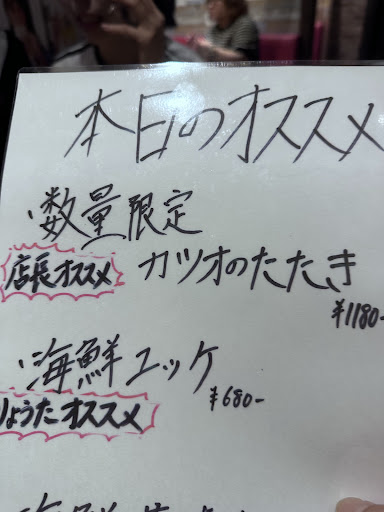 本日のオススメ
・数量限定
店長オススメ カツオのたたき
¥1180-
・海鮮ユッケ
¥680-
りょうたオススメ